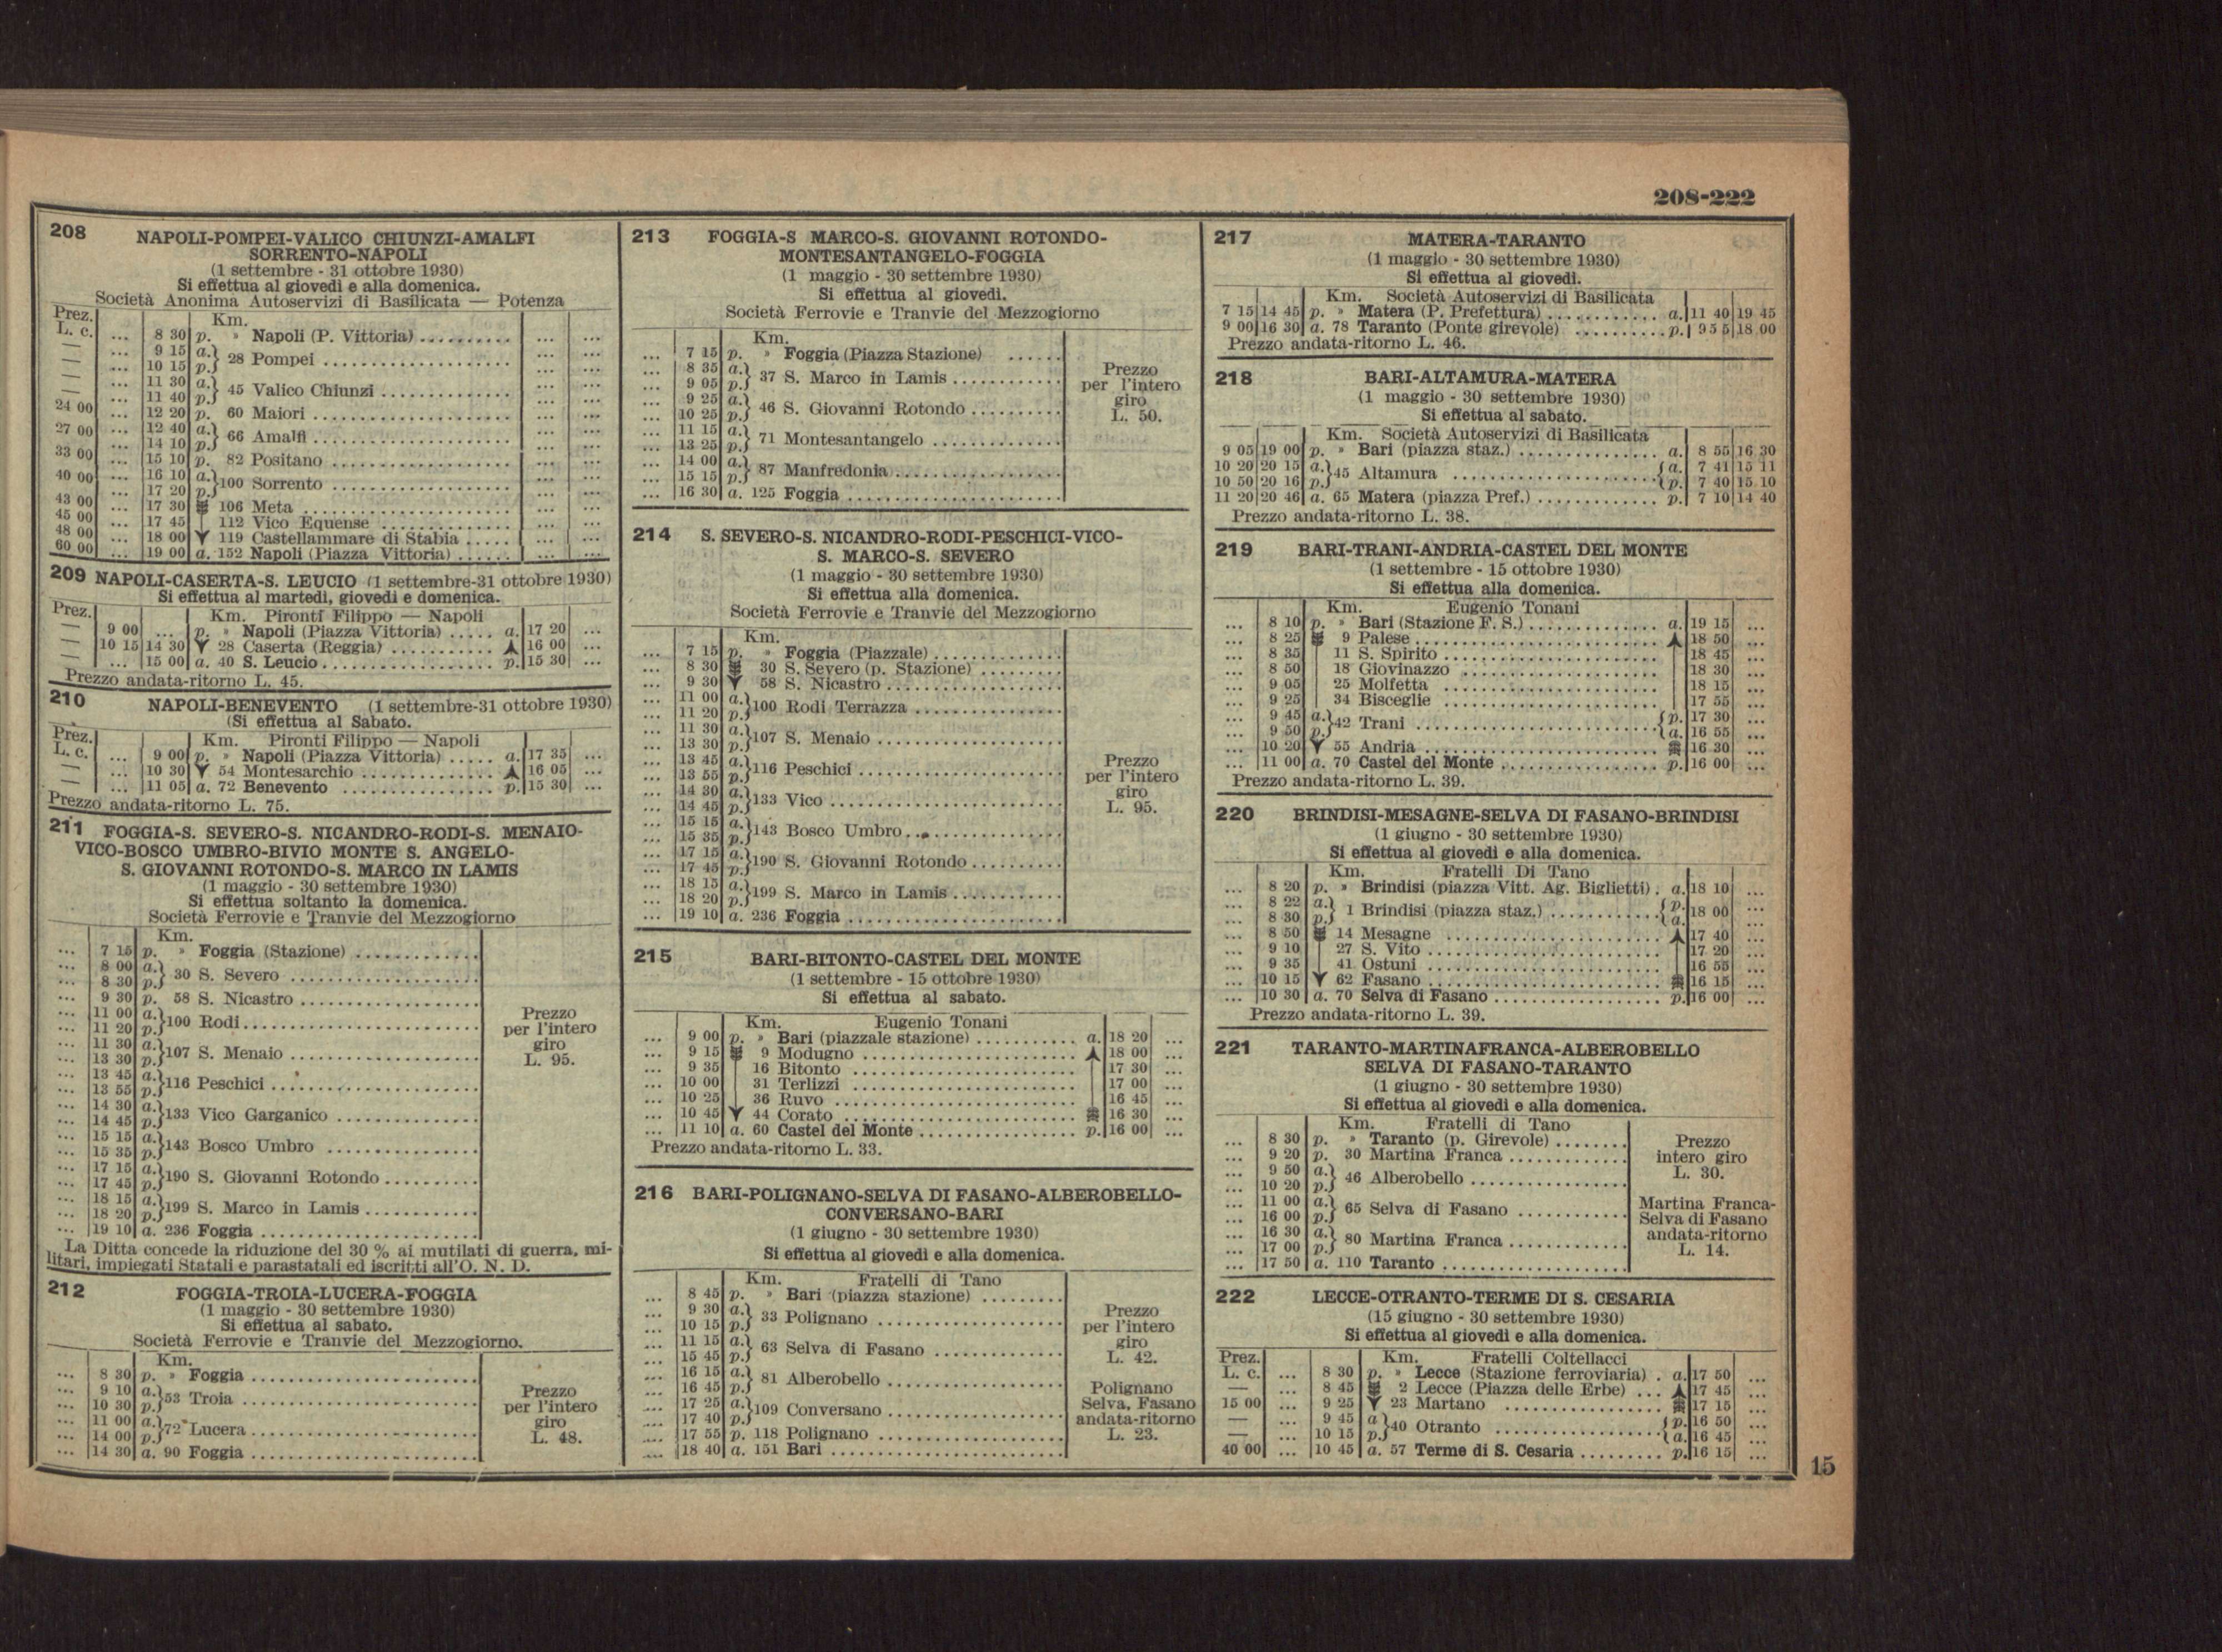 208-222
208 NAPOLI-POMPEI-VALICO CHIUNZI-AMALFI
SORRENTO-NAPOLI
(1 settembre - 31 ottobre 1930)
Si effettua al giovedì e alla domenica.
Società Anonima Autoservizi di Basilicata — Potenza
Prez. Km.
L. c. ... 8 30 p. » Napoli (P. Vittoria) .......... ... ...
— ... 9 15 a.
— ... 10 15 p. } 28 Pompei .................... ... ...
— ... 11 30 a.
— ... 11 40 p. } 45 Valico Chiunzi .............. ... ...
24 00 ... 12 20 p. 60 Maiori ..................... ... ...
27 00 ... 12 40 a.
... 14 10 p. } 66 Amalfi ..................... ... ...
33 00 ... 15 10 p. 82 Positano ................... ... ...
40 00 ... 16 10 a.
... 17 20 p. } 100 Sorrento ................... ... ...
43 00 ... 17 30 106 Meta ...................... ... ...
45 00 ... 17 45 112 Vico Equense .............. ... ...
48 00 ... 18 00 119 Castellammare di Stabia ..... ... ...
60 00 ... 19 00 a. 152 Napoli (Piazza Vittoria) ...... ... ...
209 NAPOLI-CASERTA-S. LEUCIO (1 settembre-31 ottobre 1930)
Si effettua al martedì, giovedì e domenica.
Prez. Km. Pironti Filippo — Napoli
— 9 00 ... p. » Napoli (Piazza Vittoria) ..... a. 17 20 ...
— 10 15 14 30 28 Caserta (Reggia) ........... 16 00 ...
— ... 15 00 a. 40 S. Leucio .................. p. 15 30 ...
Prezzo andata-ritorno L. 45.
210 NAPOLI-BENEVENTO (1 settembre-31 ottobre 1930)
(Si effettua al Sabato.
Prez. Km. Pironti Filippo — Napoli
L. c. ... 9 00 p. » Napoli (Piazza Vittoria) ..... a. 17 35 ...
— ... 10 30 54 Montesarchio .............. 16 05 ...
— ... 11 05 a. 72 Benevento ................ p. 15 30 ...
Prezzo andata-ritorno L. 75.
211 FOGGIA-S. SEVERO-S. NICANDRO-RODI-S. MENAIO-
VICO-BOSCO UMBRO-BIVIO MONTE S. ANGELO-
S. GIOVANNI ROTONDO-S. MARCO IN LAMIS
(1 maggio - 30 settembre 1930)
Si effettua soltanto la domenica.
Società Ferrovie e Tranvie del Mezzogiorno
Km.
... 7 15 p. » Foggia (Stazione) .............
... 8 00 a.
... 8 30 p. } 30 S. Severo ....................
... 9 30 p. 58 S. Nicastro ...................
... 11 00 a.
... 11 20 p. } 100 Rodi .........................
... 11 30 a.
... 13 30 p. } 107 S. Menaio ....................
... 13 45 a.
... 13 55 p. } 116 Peschici ......................
... 14 30 a.
... 14 45 p. } 133 Vico Garganico ...............
... 15 15 a.
... 15 35 p. } 143 Bosco Umbro ................
... 17 15 a.
... 17 45 p. } 190 S. Giovanni Rotondo ..........
... 18 15 a.
... 18 20 p. } 199 S. Marco in Lamis ............
... 19 10 a. 236 Foggia .......................
Prezzo
per l'intero
giro
L. 95.
La Ditta concede la riduzione del 30 % ai mutilati di guerra, mi-
litari, impiegati Statali e parastatali ed iscritti all'O. N. D.
212 FOGGIA-TROIA-LUCERA-FOGGIA
(1 maggio - 30 settembre 1930)
Si effettua al sabato.
Società Ferrovie e Tranvie del Mezzogiorno.
Km.
... 8 30 p. » Foggia ........................
... 9 10 a.
... 10 30 p. } 53 Troia .........................
... 11 00 a.
... 14 00 p. } 72 Lucera ........................
... 14 30 a. 90 Foggia ........................
Prezzo
per l'intero
giro
L. 48.
213 FOGGIA-S MARCO-S. GIOVANNI ROTONDO-
MONTESANTANGELO-FOGGIA
(1 maggio - 30 settembre 1930)
Si effettua al giovedì.
Società Ferrovie e Tranvie del Mezzogiorno
Km.
... 7 15 p. » Foggia (Piazza Stazione) ......
... 8 35 a.
... 9 05 p. } 37 S. Marco in Lamis ............
... 9 25 a.
... 10 25 p. } 46 S. Giovanni Rotondo ..........
... 11 15 a.
... 13 25 p. } 71 Montesantangelo ..............
... 14 00 a.
... 15 15 p. } 87 Manfredonia ..................
... 16 30 a. 125 Foggia .......................
Prezzo
per l'intero
giro
L. 50.
214 S. SEVERO-S. NICANDRO-RODI-PESCHICI-VICO-
S. MARCO-S. SEVERO
(1 maggio - 30 settembre 1930)
Si effettua alla domenica.
Società Ferrovie e Tranvie del Mezzogiorno
Km.
... 7 15 p. » Foggia (Piazzale) ..............
... 8 30 30 S. Severo (p. Stazione) .........
... 9 30 58 S. Nicastro ...................
... 11 00 a.
... 11 20 p. } 100 Rodi Terrazza ................
... 11 30 a.
... 13 30 p. } 107 S. Menaio ....................
... 13 45 a.
... 13 55 p. } 116 Peschici ......................
... 14 30 a.
... 14 45 p. } 133 Vico .........................
... 15 15 a.
... 15 35 p. } 143 Bosco Umbro .................
... 17 15 a.
... 17 45 p. } 190 S. Giovanni Rotondo ..........
... 18 15 a.
... 18 20 p. } 199 S. Marco in Lamis ............
... 19 10 a. 236 Foggia .......................
Prezzo
per l'intero
giro
L. 95.
215 BARI-BITONTO-CASTEL DEL MONTE
(1 settembre - 15 ottobre 1930)
Si effettua al sabato.
Km. Eugenio Tonani
... 9 00 p. » Bari (piazzale stazione) ........... a. 18 20 ...
... 9 15 9 Modugno ........................ 18 00 ...
... 9 35 16 Bitonto ......................... 17 30 ...
... 10 00 31 Terlizzi ......................... 17 00 ...
... 10 25 36 Ruvo ........................... 16 45 ...
... 10 45 44 Corato .......................... 16 30 ...
... 11 10 a. 60 Castel del Monte ................. p. 16 00 ...
Prezzo andata-ritorno L. 33.
216 BARI-POLIGNANO-SELVA DI FASANO-ALBEROBELLO-
CONVERSANO-BARI
(1 giugno - 30 settembre 1930)
Si effettua al giovedì e alla domenica.
Km. Fratelli di Tano
... 8 45 p. » Bari (piazza stazione) .........
... 9 30 a.
... 10 15 p. } 33 Polignano ....................
... 11 15 a.
... 15 45 p. } 63 Selva di Fasano ..............
... 16 15 a.
... 16 45 p. } 81 Alberobello ...................
... 17 25 a.
... 17 40 p. } 109 Conversano ...................
... 17 55 p. 118 Polignano ....................
... 18 40 a. 151 Bari .........................
Prezzo
per l'intero
giro
L. 42.
Polignano
Selva, Fasano
andata-ritorno
L. 23.
217 MATERA-TARANTO
(1 maggio - 30 settembre 1930)
Si effettua al giovedì.
Km. Società Autoservizi di Basilicata
7 15 14 45 p. » Matera (P. Prefettura) ............ a. 11 40 19 45
9 00 16 30 a. 78 Taranto (Ponte girevole) .......... p. 9 55 18 00
Prezzo andata-ritorno L. 46.
218 BARI-ALTAMURA-MATERA
(1 maggio - 30 settembre 1930)
Si effettua al sabato.
Km. Società Autoservizi di Basilicata
9 05 19 00 p. » Bari (piazza staz.) ............... a. 8 55 16 30
10 20 20 15 a. } 45 Altamura ...................... { a. 7 41 15 11
10 50 20 16 p. { p. 7 40 15 10
11 20 20 46 a. 65 Matera (piazza Pref.) ............. p. 7 10 14 40
Prezzo andata-ritorno L. 38.
219 BARI-TRANI-ANDRIA-CASTEL DEL MONTE
(1 settembre - 15 ottobre 1930)
Si effettua alla domenica.
Km. Eugenio Tonani
... 8 10 p. » Bari (Stazione F. S.) .............. a. 19 15 ...
... 8 25 9 Palese .......................... 18 50 ...
... 8 35 11 S. Spirito ....................... 18 45 ...
... 8 50 18 Giovinazzo ...................... 18 30 ...
... 9 05 25 Molfetta ........................ 18 15 ...
... 9 25 34 Bisceglie ........................ 17 55 ...
... 9 45 a. } 42 Trani .......................... { p. 17 30 ...
... 9 50 p. { a. 16 55 ...
... 10 20 55 Andria ......................... 16 30 ...
... 11 00 a. 70 Castel del Monte ................. p. 16 00 ...
Prezzo andata-ritorno L. 39.
220 BRINDISI-MESAGNE-SELVA DI FASANO-BRINDISI
(1 giugno - 30 settembre 1930)
Si effettua al giovedì e alla domenica.
Km. Fratelli Di Tano
... 8 20 p. » Brindisi (piazza Vitt. Ag. Biglietti) . a. 18 10 ...
... 8 22 a. } 1 Brindisi (piazza staz.) ............ { p. 18 00 ...
... 8 30 p. { a. ...
... 8 50 14 Mesagne ........................ 17 40 ...
... 9 10 27 S. Vito ......................... 17 20 ...
... 9 35 41 Ostuni .......................... 16 55 ...
... 10 15 62 Fasano .......................... 16 15 ...
... 10 30 a. 70 Selva di Fasano .................. p. 16 00 ...
Prezzo andata-ritorno L. 39.
221 TARANTO-MARTINAFRANCA-ALBEROBELLO
SELVA DI FASANO-TARANTO
(1 giugno - 30 settembre 1930)
Si effettua al giovedì e alla domenica.
Km. Fratelli di Tano
... 8 30 p. » Taranto (p. Girevole) ........
... 9 20 p. 30 Martina Franca .............
... 9 50 a.
... 10 20 p. } 46 Alberobello .................
... 11 00 a.
... 16 00 p. } 65 Selva di Fasano ............
... 16 30 a.
... 17 00 p. } 80 Martina Franca .............
... 17 50 a. 110 Taranto ....................
Prezzo
intero giro
L. 30.
Martina Franca-
Selva di Fasano
andata-ritorno
L. 14.
222 LECCE-OTRANTO-TERME DI S. CESARIA
(15 giugno - 30 settembre 1930)
Si effettua al giovedì e alla domenica.
Prez. Km. Fratelli Coltellacci
L. c. ... 8 30 p. » Lecce (Stazione ferroviaria) . a. 17 50 ...
— ... 8 45 2 Lecce (Piazza delle Erbe) ... 17 45 ...
15 00 ... 9 25 23 Martano .................. 17 15 ...
— ... 9 45 a } 40 Otranto ................... { p. 16 50 ...
— ... 10 15 p. { a. 16 45 ...
40 00 ... 10 45 a. 57 Terme di S. Cesaria ......... p. 16 15 ...
15